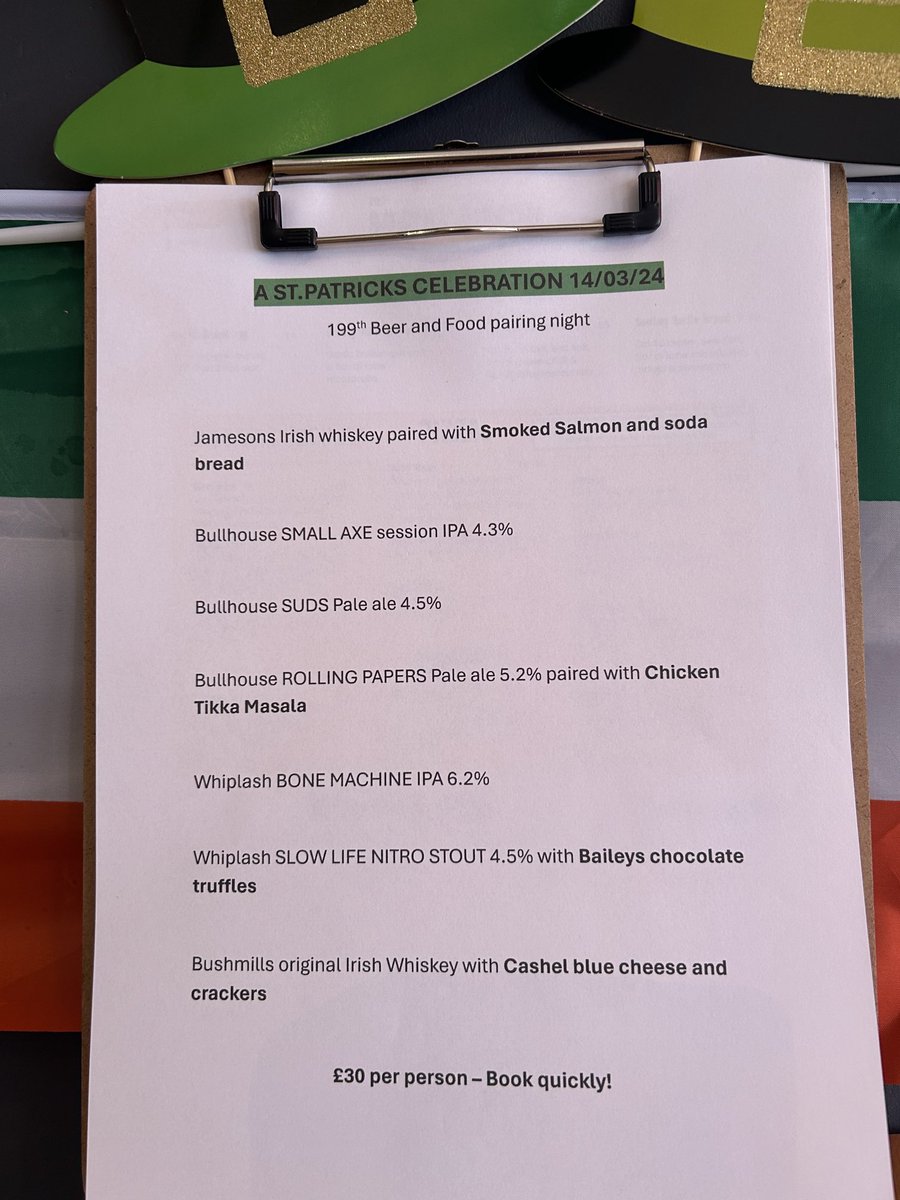 A ST.PATRICKS CELEBRATION 14/03/24
199th Beer and Food pairing night
Jamesons Irish whiskey paired with Smoked Salmon and soda
bread
Bullhouse SMALL AXE session IPA 4.3%
Bullhouse SUDS Pale ale 4.5%
Bullhouse ROLLING PAPERS Pale ale 5.2% paired with Chicken
Tikka Masala
Whiplash BONE MACHINE IPA 6.2%
Whiplash SLOW LIFE NITRO STOUT 4.5% with Baileys chocolate
truffles
Bushmills original Irish Whiskey with Cashel blue cheese and
crackers
£30 per person – Book quickly!